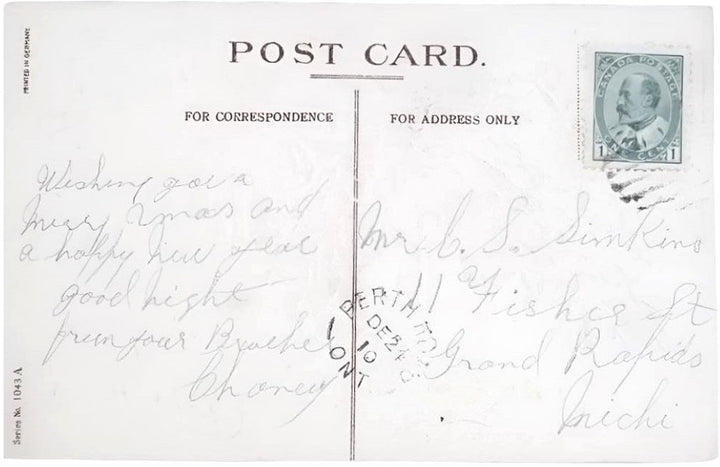 POST CARD.
PRINTED IN GERMANY
FOR CORRESPONDENCE
FOR ADDRESS ONLY
CANADA POSTAGE
ONE CENT
1 1
Wishing you a
Mery Xmas and
a happy New year
good night
from your Brother
Mr C. S. Simkins
11 Fisher St
Grand Rapids
Michi
PERTH
DE 24
10
ONT
Series No. 1043 A